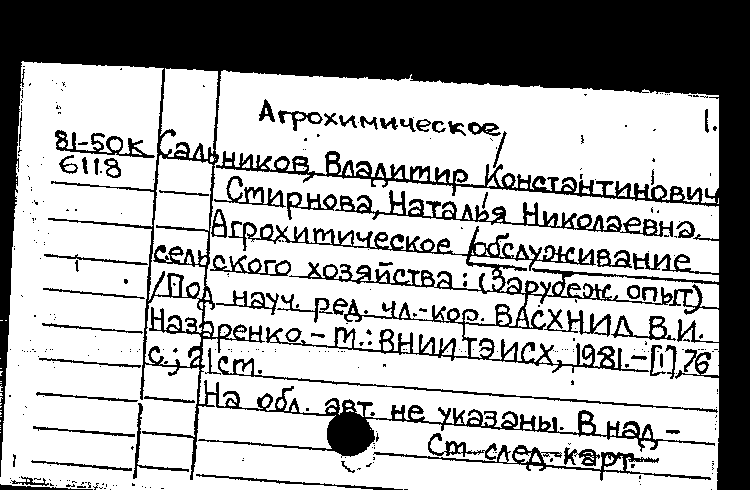 Агрохимическое 1.
81-50К Сальников, Владимир Константинович
6118 Смирнова, Наталья Николаевна.
Агрохимическое обслуживание
сельского хозяйства: (Зарубеж. опыт)
/Под науч. ред. чл.-кор. ВАСХНИЛ В.И.
Назаренко. - М.: ВНИИТЭИСХ, 1981. - [1], 76
с.; 21 см.
На обл. авт. не указаны. В над -
См след. карт.